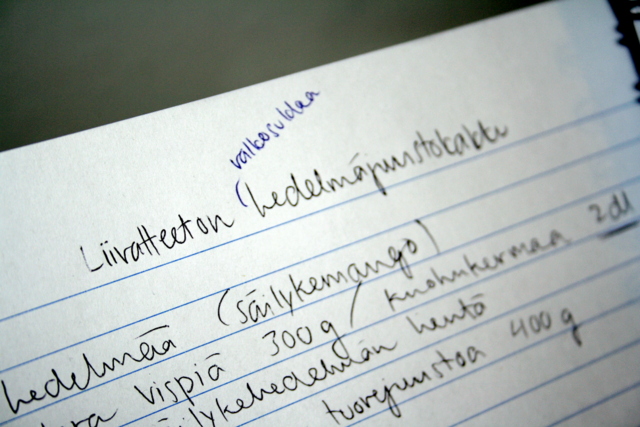 valkosuklaa
Liivatteeton (hedelmäjuustokakku
hedelmää (säilykemango)
vispiä 300 g / kuohukermaa 2 dl
säilykehedelmän lientä
tuorejuustoa 400 g